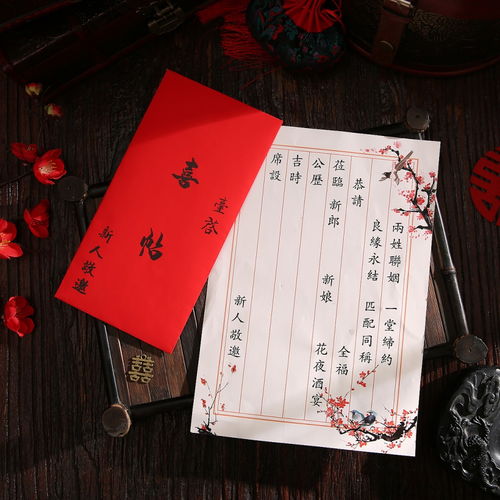 臺啓
喜帖
新人敬邀
兩姓聯姻 一堂締約
良緣永結 匹配同稱
恭請 全福
蒞臨 新郎 新娘 花夜酒宴
公歷
吉時
席設
新人敬邀
囍